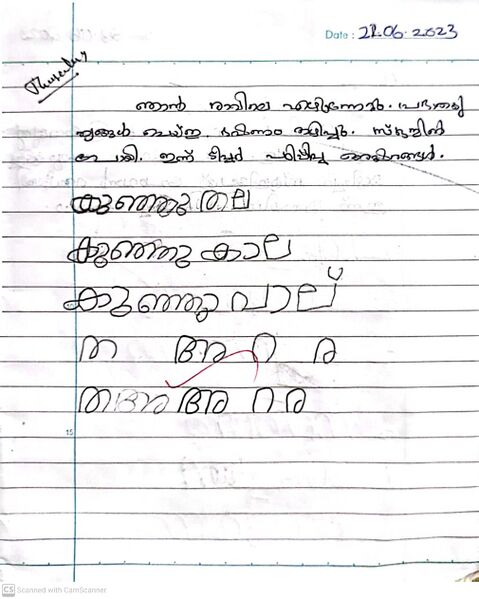 Date : 21.06.2023
Thursday
ഞാൻ രാവിലെ എഴുന്നേറ്റു. പ്രഭാത
കൃത്യങ്ങൾ ചെയ്തു. ഭക്ഷണം കഴിച്ചു. സ്കൂളിൽ
പോയി. ഇന്ന് ടീച്ചർ പഠിപ്പിച്ച അക്ഷരങ്ങൾ.
കുഞ്ഞു തല
കുഞ്ഞു കാല
കുഞ്ഞു പാല്
ത അ റ ര
ത അ അ റ ര
15
CS Scanned with CamScanner